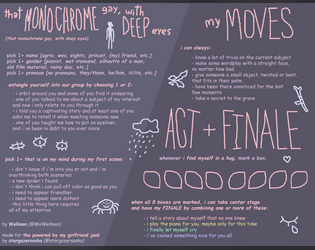 that MONOCHROME gay, with DEEP eyes
(that monochrome gay, with deep eyes)
pick 1+ name [agrio, wes, eights, prescot, (my) friend, etc.]
pick 1+ gender [pianist, wet ironsand, silhouette of a man,
old film material, remy day, etc.]
pick 1+ pronoun [no pronouns, they/them, he/him, it/its, etc.]
entangle yourself into our group by choosing 1 or 2:
- i orbit around you and some of you find it endearing
- one of you talked to me about a subject of my interest
and now i only relate to you through it
- i told you a captivating story and at least one of you
asks me to retell it when meeting someone new
- one of you taught me how to put on eyeliner,
and i've been in debt to you ever since
pick 1+ that is on my mind during my first scene:
- i don't know if i'm into you or not and i'm
overthinking both scenarios
- a new spider i found
- don't think i can pull off color as good as you
- need to appear friendlier
- need to appear more distant
- this little thing here requires
all of my attention
by Wellman
made for the powered by my girlfriend jam!
by stargazersasha
my MOVES
i can always:
- know a lot of trivia on the current subject
- make some wordplay with a straight face,
no matter how bad
- give someone a small object, twisted or bent,
that fits in their palm
- have been there unnoticed for the last
few moments
- take a secret to the grave
ACT + FINALE
whenever i find myself in a hug, mark a box.
when all 8 boxes are marked, i can take center stage
and have my FINALE by combining one or more of these:
- i tell a story about myself that no one knew
- i play the piano for you, maybe only for this time
- i finally let myself cry
- i've cooked something nice for you all